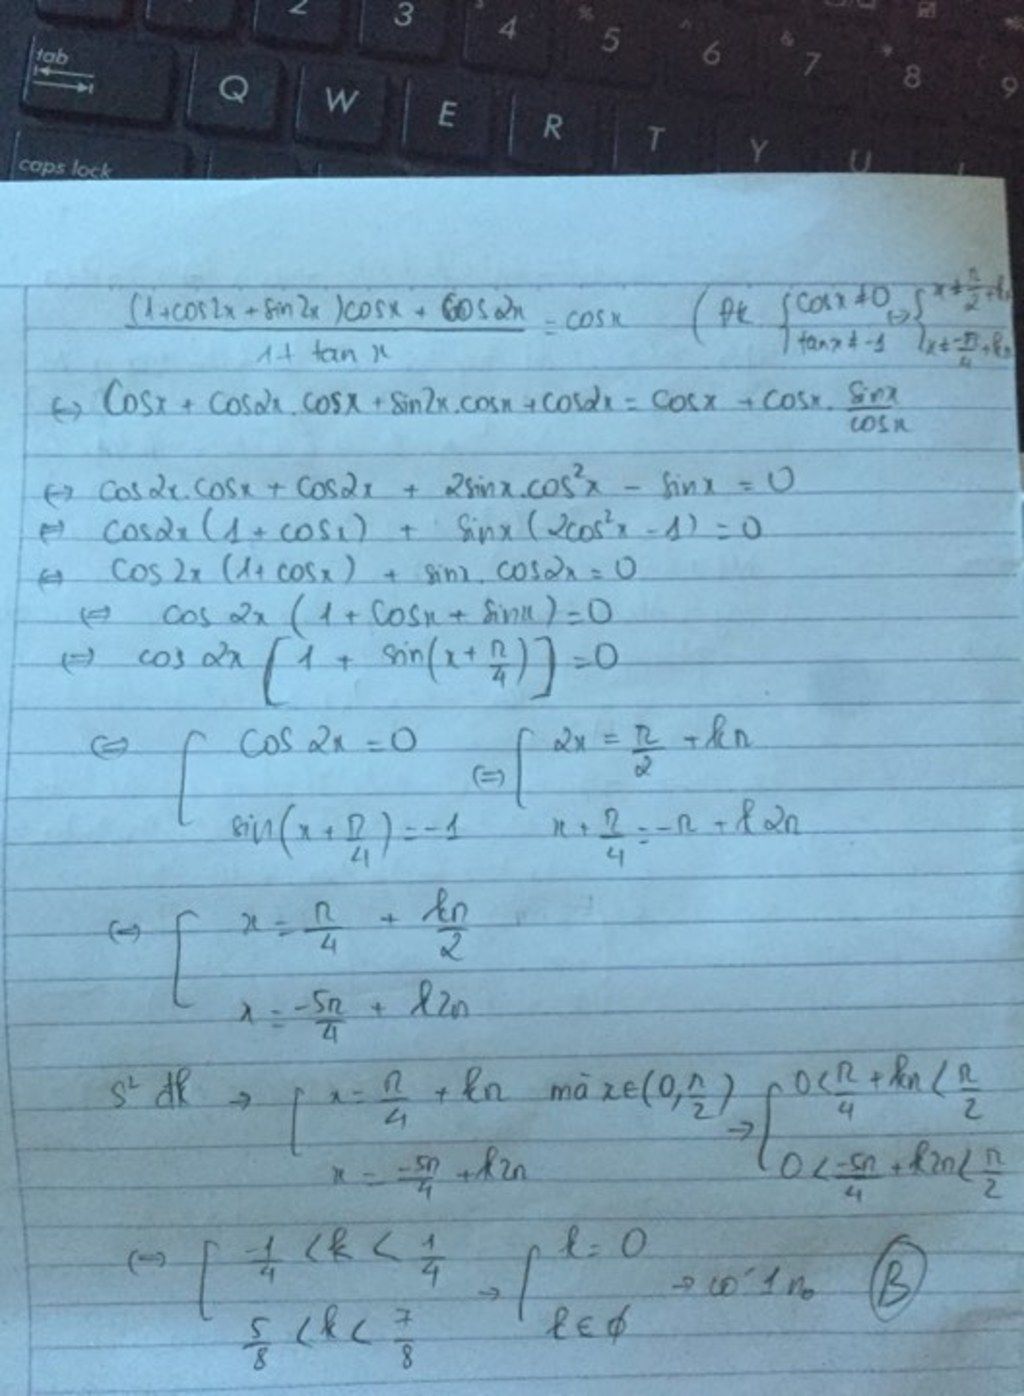 2 3 4 % 5 ^ 6 & 7 * 8 9
tab Q W E R T Y U
caps lock
((1+cos2x + sin2x)cosx + cos2x)/(1+ tan x) = cosx ( đk { cosx ≠ 0 tanx ≠ -1 <=> { x ≠ π/2 + kπ x ≠ -π/4 + kπ
<=> Cosx + cos2x.cosx + sin2x.cosx + cos2x = cosx + cosx. sinx/cosx
<=> cos2x.cosx + cos2x + 2sinx.cos²x - sinx = 0
<=> cos2x (1 + cosx) + sinx (2cos²x - 1) = 0
<=> Cos 2x (1+cosx) + sinx. cos2x = 0
<=> cos 2x (1 + Cosx + sinx) = 0
<=> cos 2x [1 + sin(x + π/4)] = 0
<=> [ cos 2x = 0 <=> [ 2x = π/2 + kπ
sin(x + π/4) = -1 x + π/4 = -π + k2π
<=> [ x = π/4 + kπ/2
x = -5π/4 + k2π
S² đk → [ x = π/4 + kπ mà x∈(0, π/2) → [ 0 < π/4 + kπ < π/2
x = -5π/4 + k2π 0 < -5π/4 + k2π < π/2
<=> [ -1/4 < k < 1/4 → [ k = 0 → có 1 no B
5/8 < k < 7/8 k ∈ ϕ